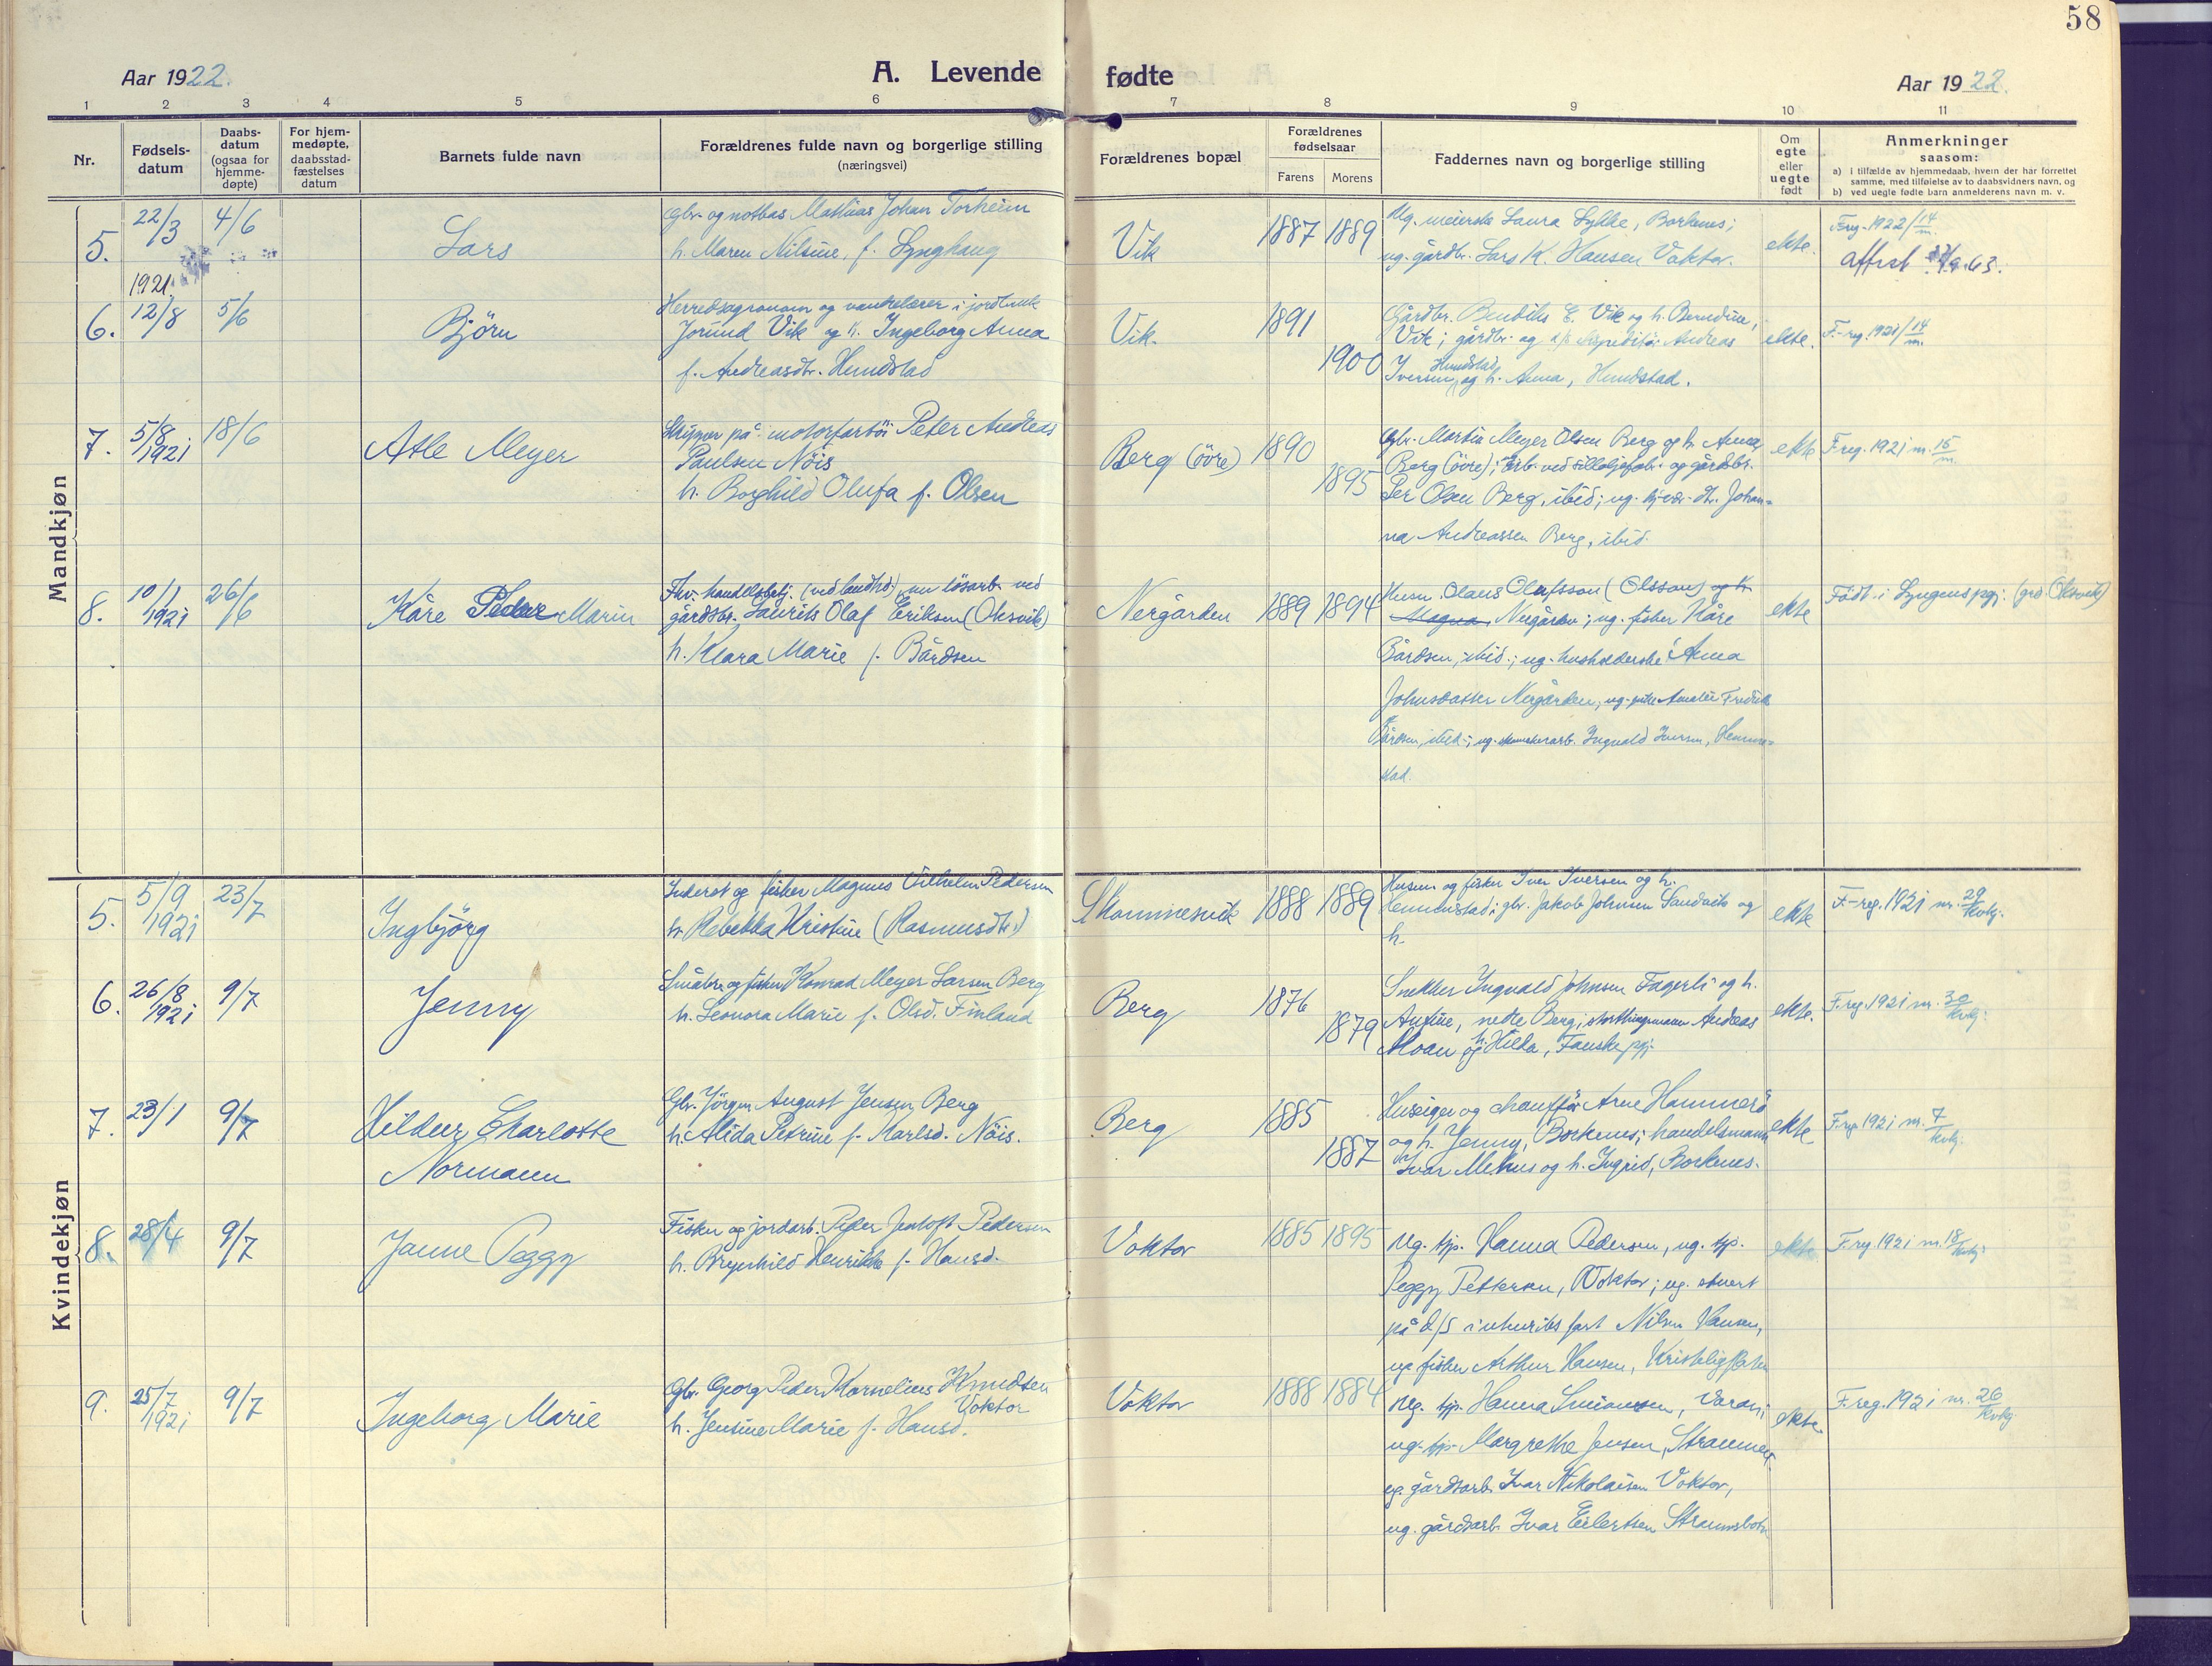 58
Aar 1922.
A. Levende fødte
Aar 1922.
1 2 3 4 5 6 7 8 9 10 11
Nr.
Fødsels-
datum
Daabs-
datum
(ogsaa for
hjemme-
døpte)
For hjem-
medøpte,
daabsstad-
fæstelses
datum
Barnets fulde navn
Forældrenes fulde navn og borgerlige stilling
(næringsvei)
Forældrenes bopæl
Forældrenes
fødselsaar
Farens Morens
Faddernes navn og borgerlige stilling
Om
egte
eller
uegte
født
Anmerkninger
saasom:
a) i tilfælde av hjemmedaab, hvem der har forrettet
samme, med tilføielse av to daabsvidners navn, og
b) ved uegte fødte barn anmelderens navn m. v.
Mandkjøn
5.
22/3
4/6
Lars
Gbr. og notbas Mathias Johan Torheim
h. Maren Nilsine, f. Lynghaug
Vik
1887 1889
Ug. meierske Laura Lykke, Borkenes;
ug. gårdbr. Lars K. Hansen Voktor.
ekte.
F.reg. 1922/14 m.
6.
1921
12/8
5/6
Björn
Herredsagronom og vandrelærer i jordbruk
Jorund Vik og h. Ingeborg Anna
f. Andreasdtr. Hundstad
Vik.
1891
1900
Gårdbr. Bendiks E. Vik og h. Berndine,
Vik; gårdbr. og d/s expeditör Andreas
Iversen Hundstad og h. Anna, Hundstad.
ekte.
F.-reg. 1921/14 m.
7.
5/8
1921
18/6
Atle Meyer
Skipper på motorfartöi Peter Andreas
Paulsen Nöis
h. Borghild Olufa f. Olsen
Berg (övre)
1890
1895
Gbr. Martin Meyer Olsen Berg og h. Anna,
Berg (övre); arb. ved sildoljefabr. og gårdbr.
Per Olsen Berg, ibid; ug. hjvær. dtr. Johan-
na Andreassen Berg, ibid.
ekte
F.reg. 1921 nr. 15 m.
8.
10/1
1921
26/6
Kåre Peder Marin
Fhv. handelsbetj. (ved landhd.) nu lösarb. ved
gårdsbr. Laurits Olaf Eriksen (Oksvik)
h. Klara Marie f. Bårdsen
Nergården
1889 1894
Husm. Olaus Olafsson (Olsson) og h.
Magna, Nergården; ug. fisker Kåre
Bårdsen, ibid.; ug. husholderske Anna
Johnsdatter Nergården, ug. pike Amalie Fredrikke
Bårdsen, ibid.; ug. Ingvald Iversen, Hemme-
stad.
ekte
Född i Lyngens pgj. (grd. Oksvik)
Kvindekjøn
5.
5/9
1921
23/7
Ingbjörg
Inderst og fisker Magnus Vilhelm Pedersen
h. Rebekka Kristine (Rasmusdtr.)
Skommesvik
1888 1889
Husm. og fisker Iver Iversen og h.
Hemmestad; gbr. Jakob Johnsen Sandvik og
h.
ekte
F.-reg. 1921 nr. 29 kvkj.
6.
26/8
1921
9/7
Jenny
Småbr. og fisker Konrad Meyer Larsen Berg
h. Leonora Marie f. Olsd. Finland
Berg
1876
1879
Snekker Ingvald Johnsen Fagerli og h.
Antine, nedre Berg; stortingsmann Andreas
Moan og h. Hilda, Fauske pgj.
ekte.
F.reg. 1921 nr. 30 kvkj.
7.
23/1
9/7
Hildur Charlotte
Normann
Gbr. Jörgen August Jensen Berg
h. Alida Petrine f. Karlsd. Nöis.
Berg
1885
1887
Huseiger og chaufför Arne Hammerö
og h. Jenny, Borkenes; handelsmann
Ivar Mehus og h. Ingrid, Borkenes.
ekte
F.reg. 1921 nr. 7 kvkj.
8.
28/4
9/7
Janne Peggy
Fisker og jordarb. Peder Jentoft Pedersen
h. Brynhild Henrikke f. Hansd.
Voktor
1885 1895
Ug. tjp. Hanna Pedersen, ug. tjp.
Peggy Pettersen, Voktor; ug. stuert
på d/s i utenriks fart Nilsen Hansen,
ug. fisker Arthur Hansen,
ekte
F.reg. 1921 nr. 18 kvkj.
9.
25/7
1921
9/7
Ingeborg Marie
Gbr. Georg Peder Kornelius Knudsen
Voktor
h. Jensine Marie f. Hansd.
Voktor
1888 1884
Ug. tjp. Hanna Simonsen,
ug. tjp. Margrethe Jensen,
ug. gårdsarb. Ivar Nikolaisen Voktor,
ug. gårdsarb. Ivar Eilertsen Straumsbotn
ekte
F.reg. 1921 nr. 26 kvkj.